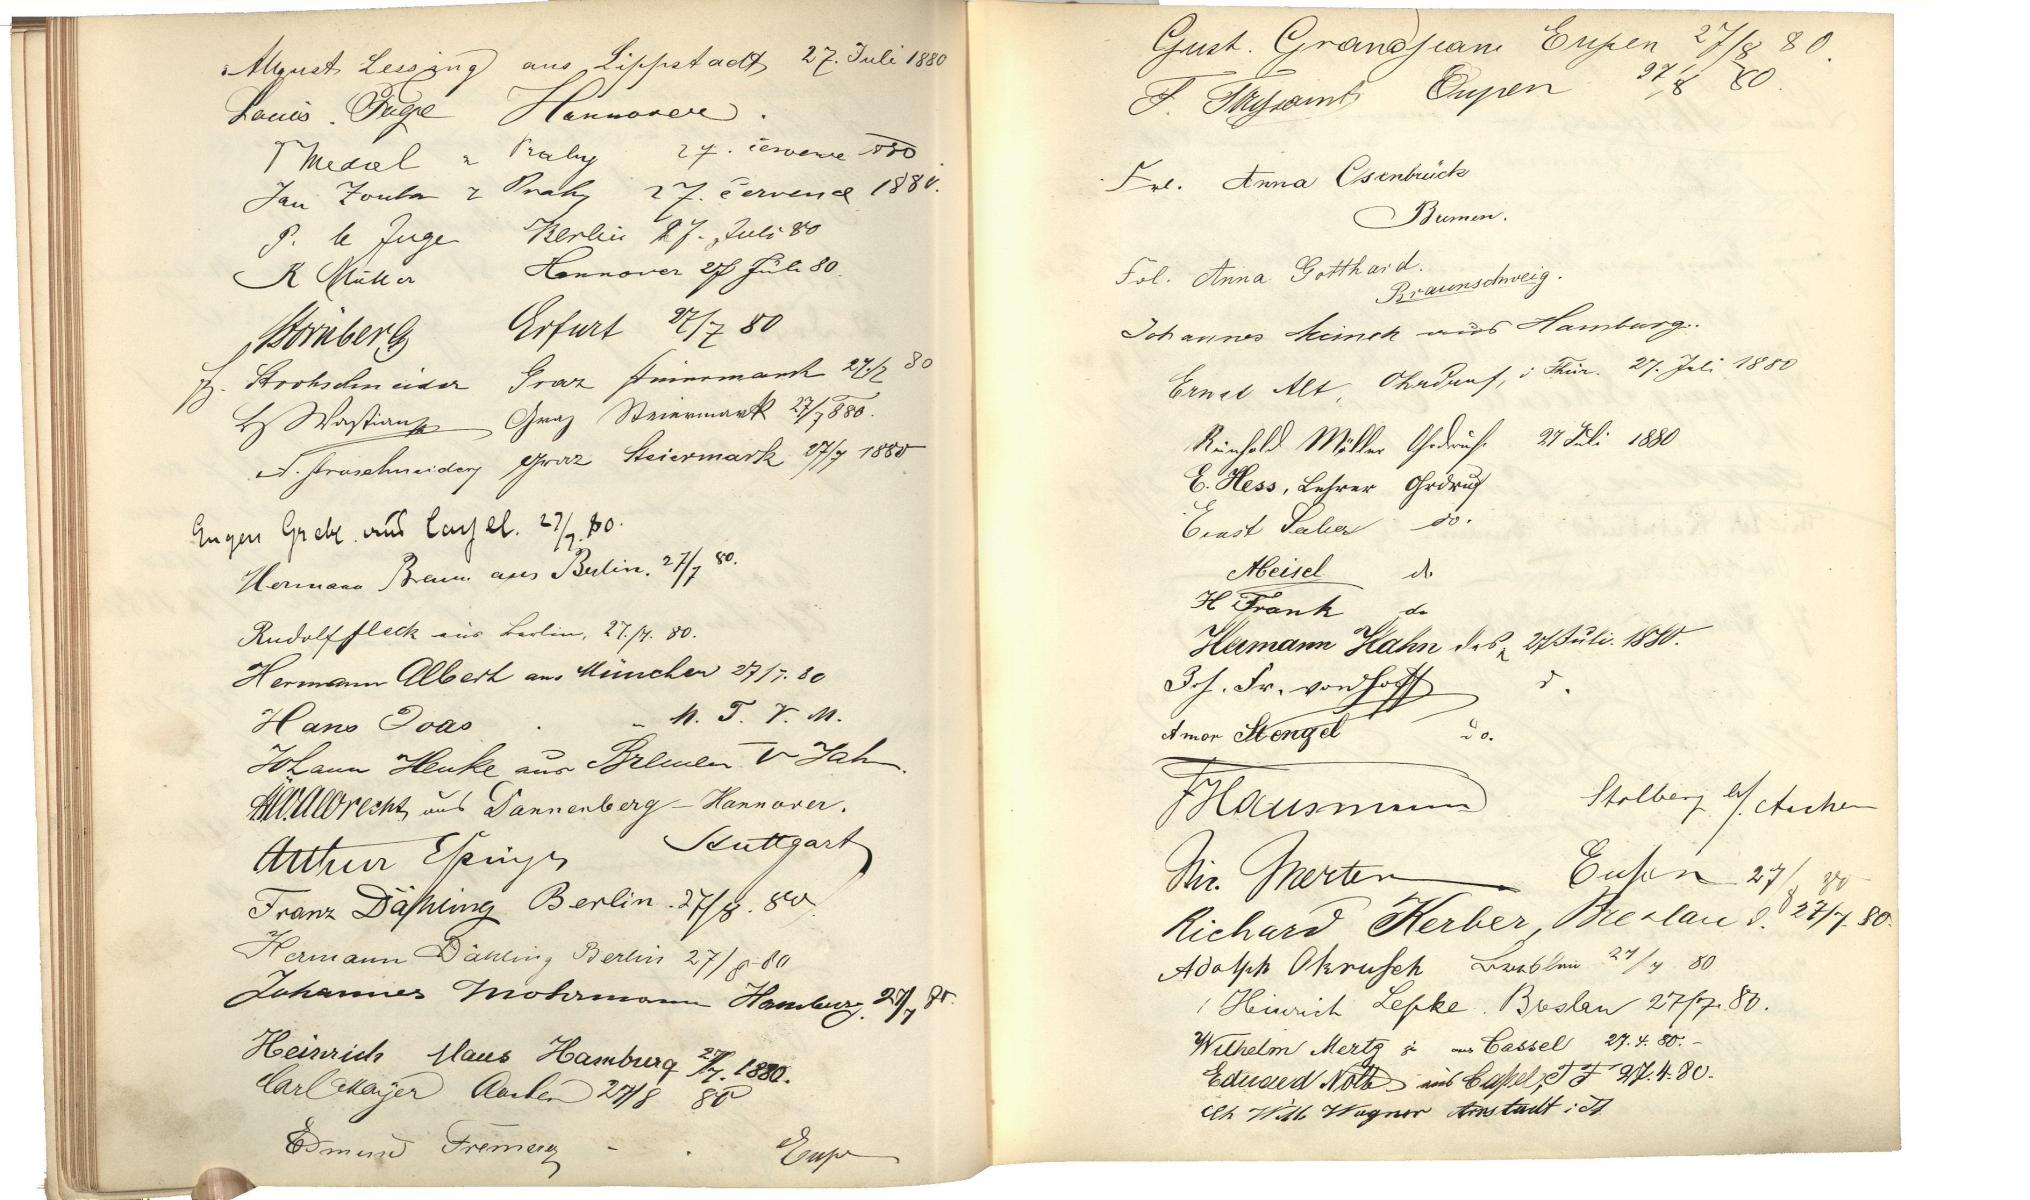 August Lessing aus Lippstadt 27. Juli 1880
Louis Hannover.
27. července 1880
Jan Zouba z Prahy 27. července 1880.
P. le Juge Berlin 27. Juli 80
K Müller Hannover 27 Juli 80.
Erfurt 27/7 80
Strohschneider Graz Steiermark 27/7 80
Wastian Graz Steiermark 27/7 880.
Graz Steiermark 27/7 1880
Eugen Grebe aus Cassel. 27/7. 80.
Hermann Braun aus Berlin. 27/7 80.
Rudolf Fleck aus Berlin, 27./7. 80.
Hermann Albert aus München 27/7. 80
Hans Doas - M. T. V. M.
Johann Henke aus Bremen T V Jahn.
Albrecht aus Dannenberg - Hannover.
Arthur Stuttgart
Franz Dähling Berlin. 27/8. 80.
Hermann Dähling Berlin 27/8 80
Johannes Mohrmann Hamburg. 27/7 80.
Heinrich Maus Hamburg 27/7. 1880.
Carl Mayer Aachen 27/8 80
Edmund Fremerey - . Eupen
Gust. Grandjean Eupen 27/8 80.
F. Eupen 27/8 80.
Frl. Anna Osenbrück
Bremen.
Frl. Anna Gotthard.
Braunschweig.
Johannes aus Hamburg.
Ernst Alt, Ohrdruf, i Thür. 27. Juli 1880
Reinhold Möller Ohrdruf. 27 Juli 1880
E. Hess, Lehrer Ohrdruf
Ernst do.
Meisel do
H Frank do
Hermann Hahn 27 Juli. 1880.
Joh. Fr. von Hoff d.
Amor Stengel do.
F Hausmann Stolberg b/. Aachen
Nic. Merten Eupen 27/8 80
Richard Kerber, Breslau d. 27/7. 80.
Adolph Okrusch Breslau 27/7 80
Heinrich Lepke. Breslau 27/7. 80.
Wilhelm Mertz aus Cassel 27. 4. 80. -
Eduard Noth aus Cassel, T F 27. 4. 80.
Wilh Wagner Arnstadt i Th